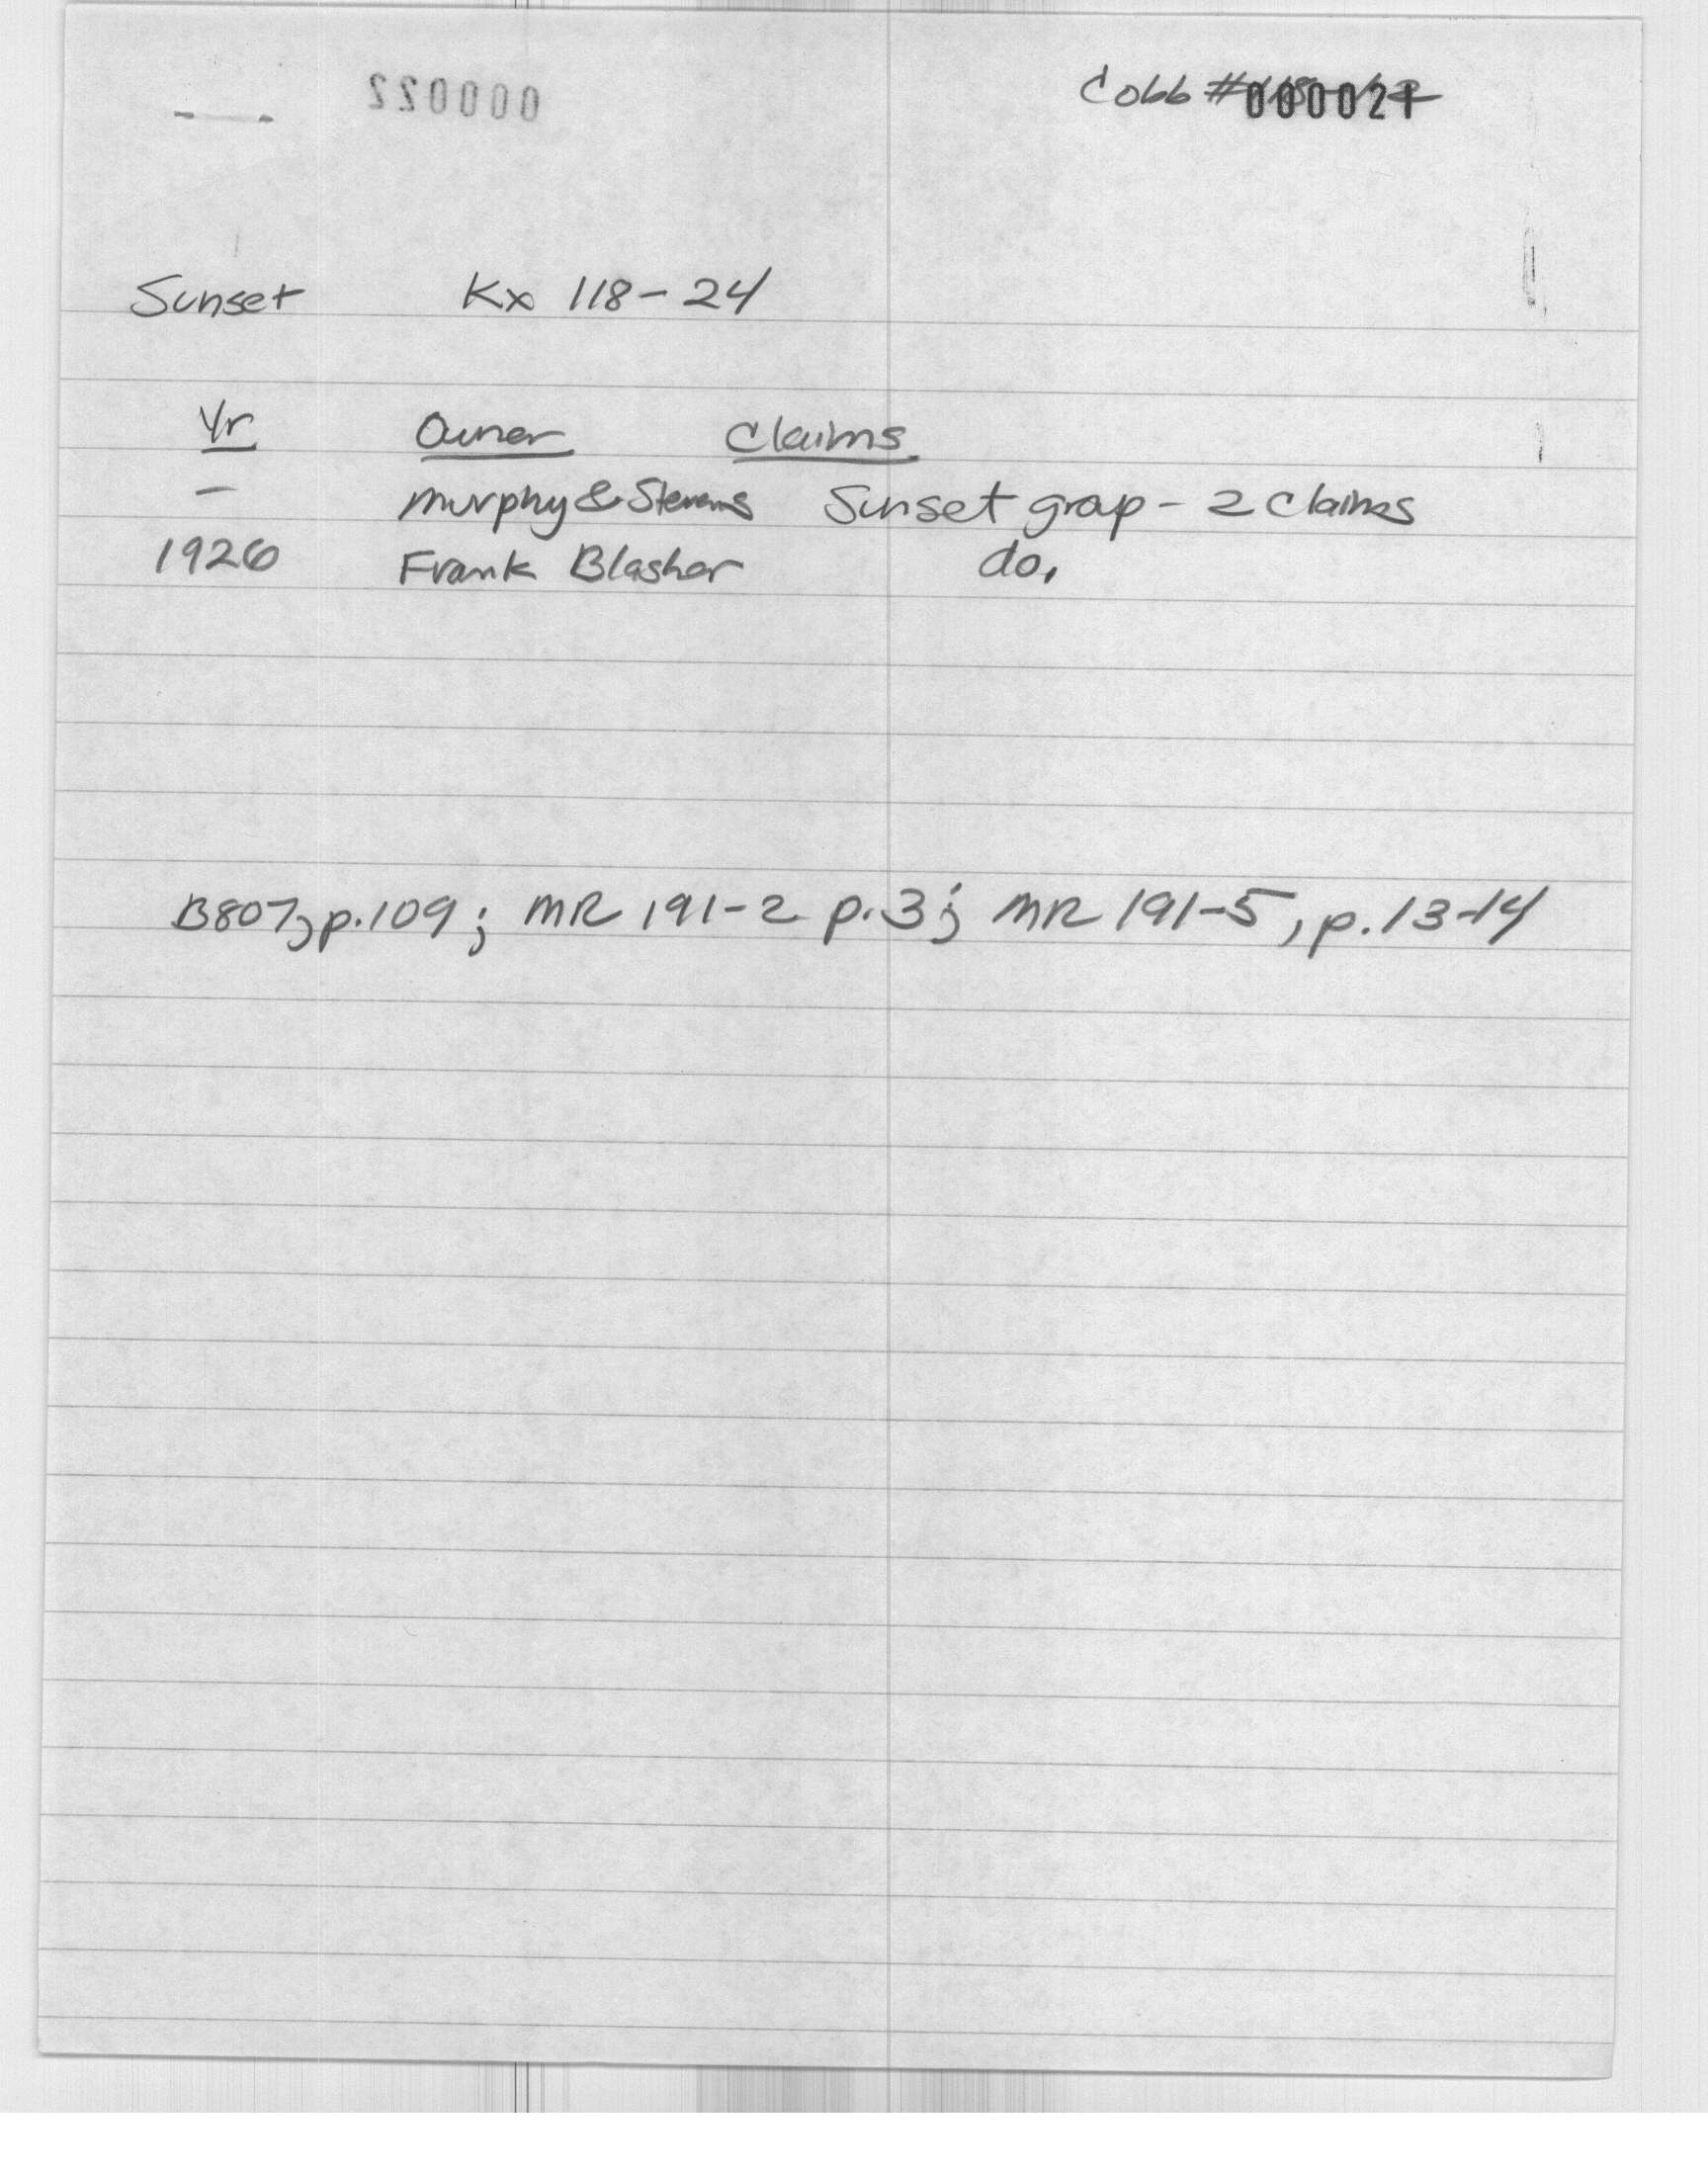 000022
Cobb # 000021
Sunset Kx 118-24
Yr Owner Claims
— Murphy & Stevens Sunset group - 2 claims
1926 Frank Blasher do.
B807, p.109; MR 191-2 p.3; MR 191-5, p.13-14